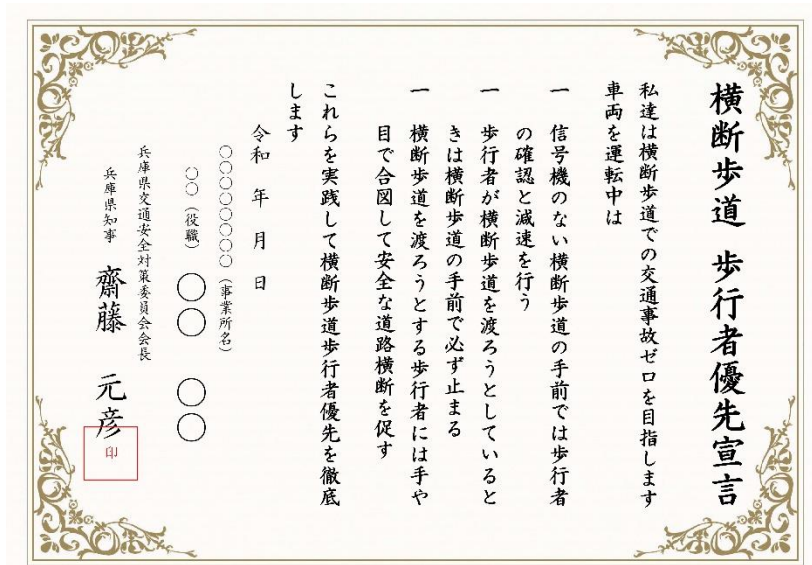 横断歩道 歩行者優先宣言
私達は横断歩道での交通事故ゼロを目指します
車両を運転中は
一 信号機のない横断歩道の手前では歩行者
の確認と減速を行う
一 歩行者が横断歩道を渡ろうとしていると
きは横断歩道の手前で必ず止まる
一 横断歩道を渡ろうとする歩行者には手や
目で合図して安全な道路横断を促す
これらを実践して横断歩道歩行者優先を徹底
します
令和 年 月 日
○○○○○○○○（事業所名）
○○（役職） ○○ ○○
兵庫県交通安全対策委員会会長
兵庫県知事 齋藤 元彦
印